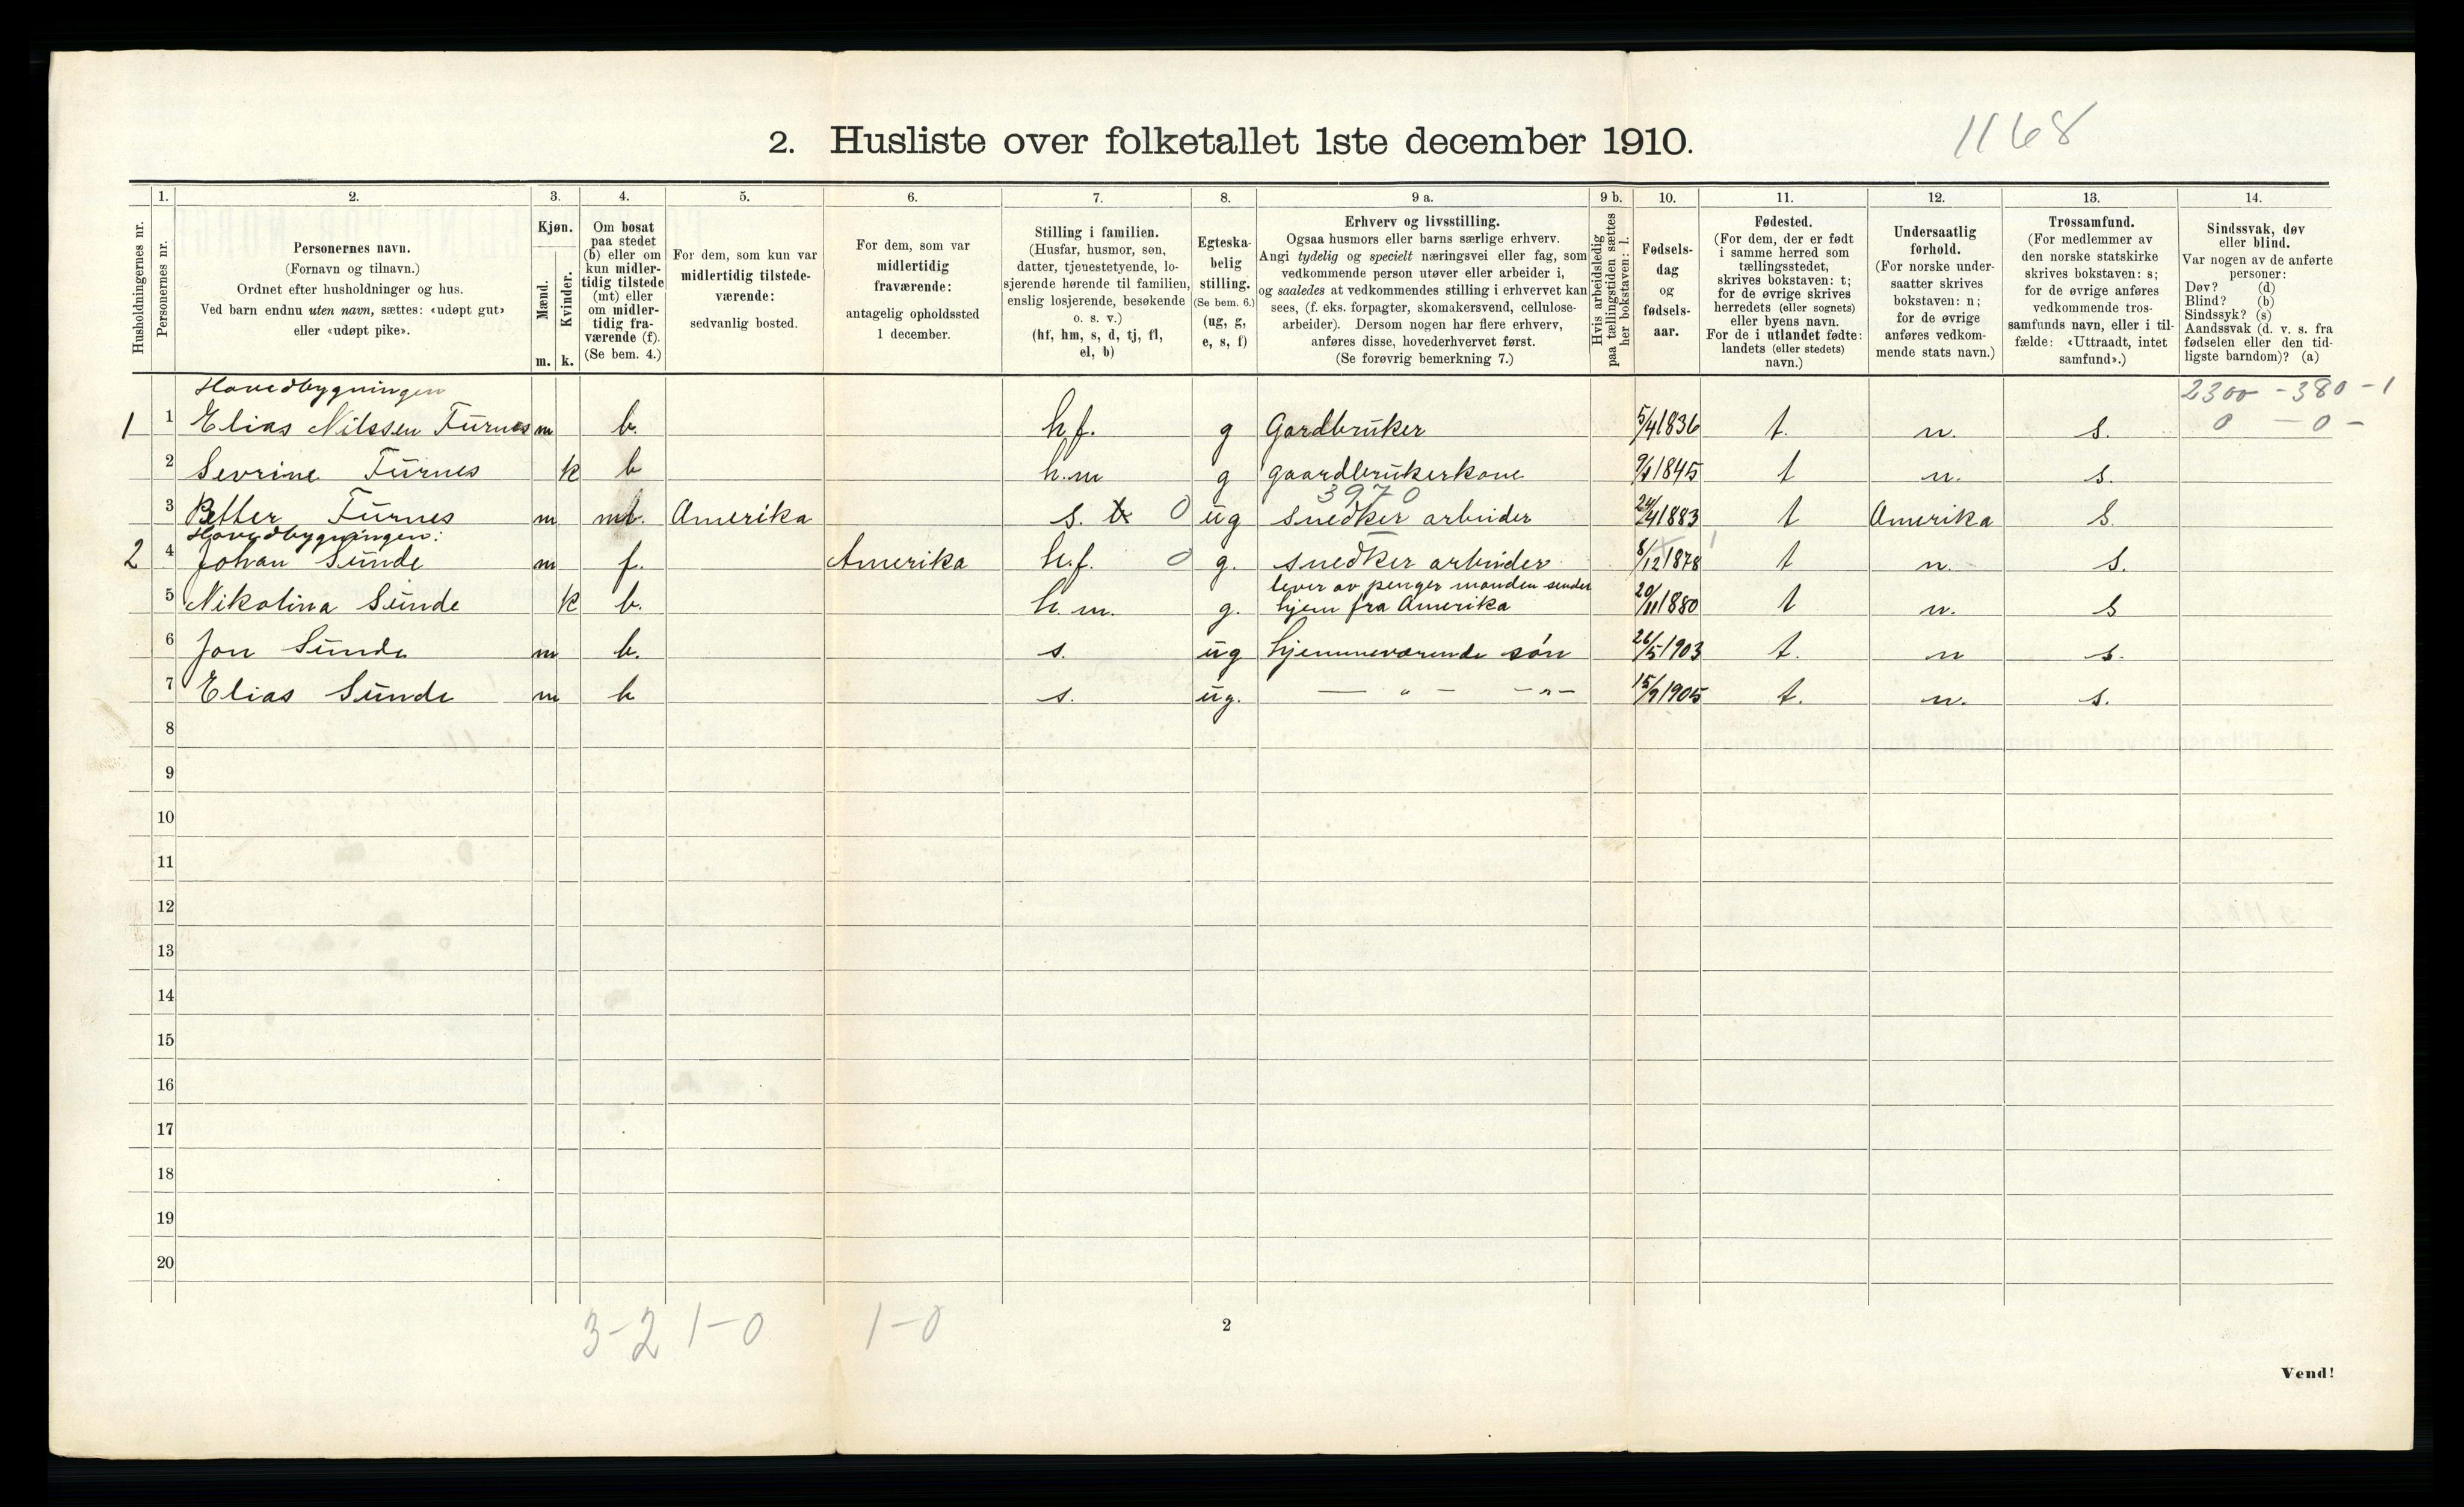 2. Husliste over folketallet 1ste december 1910.
1168
1. 2. 3. 4. 5. 6. 7. 8. 9 a. 9 b. 10. 11. 12. 13. 14.
Husholdningernes nr.
Personernes nr.
Personernes navn.
(Fornavn og tilnavn.)
Ordnet efter husholdninger og hus.
Ved barn endnu uten navn, sættes: «udøpt gut»
eller «udøpt pike».
Kjøn.
Mænd.
Kvinder.
m. k.
Om bosat
paa stedet
(b) eller om
kun midler-
tidig tilstede
(mt) eller
om midler-
tidig fra-
værende (f).
(Se bem. 4.)
For dem, som kun var
midlertidig tilstede-
værende:
sedvanlig bosted.
For dem, som var
midlertidig
fraværende:
antagelig opholdssted
1 december.
Stilling i familien.
(Husfar, husmor, søn,
datter, tjenestetyende, lo-
sjerende hørende til familien,
enslig losjerende, besøkende
o. s. v.)
(hf, hm, s, d, tj, fl,
el, b)
Egteska-
belig
stilling.
(Se bem. 6.)
(ug, g,
e, s, f)
Erhverv og livsstilling.
Ogsaa husmors eller barns særlige erhverv.
Angi tydelig og specielt næringsvei eller fag, som
vedkommende person utøver eller arbeider i,
og saaledes at vedkommendes stilling i erhvervet kan
sees, (f. eks. forpagter, skomakersvend, cellulose-
arbeider). Dersom nogen har flere erhverv,
anføres disse, hovederhvervet først.
(Se forøvrig bemerkning 7.)
Hvis arbeidsledig
paa tællingstiden sættes
her bokstaven: l.
Fødsels-
dag
og
fødsels-
aar.
Fødested.
(For dem, der er født
i samme herred som
tællingsstedet,
skrives bokstaven: t;
for de øvrige skrives
herredets (eller sognets)
eller byens navn.
For de i utlandet fødte:
landets (eller stedets)
navn.)
Undersaatlig
forhold.
(For norske under-
saatter skrives
bokstaven: n;
for de øvrige
anføres vedkom-
mende stats navn.)
Trossamfund.
(For medlemmer av
den norske statskirke
skrives bokstaven: s;
for de øvrige anføres
vedkommende tros-
samfunds navn, eller i til-
fælde: «Uttraadt, intet
samfund».)
Sindssvak, døv
eller blind.
Var nogen av de anførte
personer:
Døv? (d)
Blind? (b)
Sindssyk? (s)
Aandssvak (d. v. s. fra
fødselen eller den tid-
ligste barndom)? (a)
Hovedbygningen 2300 - 380 - 1
1 1 Elias Nilssen Furnes m b. h.f. g Gardbruker 5/4 1836 t. n. s. 0 - 0 -
2 Sevrine Furnes k b h.m g gaardbrukerkone 1845 t n. s.
3970
3 Petter Furnes m mt. Amerika s. 0 ug snedker arbeider 24/4 1883 t Amerika S.
Hovedbygningen:
2 4 Johan Sunde m f. Amerika h.f. 0 g. snedker arbeider 8/12 1878 t n. s.
lever av penger manden sender
5 Nikolina Sunde k b. h.m. g. hjem fra Amerika 20/11 1880 t n. s
6 Jon Sunde m b. s. ug hjemmeværende søn 26/5 1903 t. n s.
7 Elias Sunde m b s. ug. — " — - " - 15/9 1905 t. n. s.
8
9
10
11
12
13
14
15
16
17
18
19
20
3-2 1-0 1-0
2
Vend!